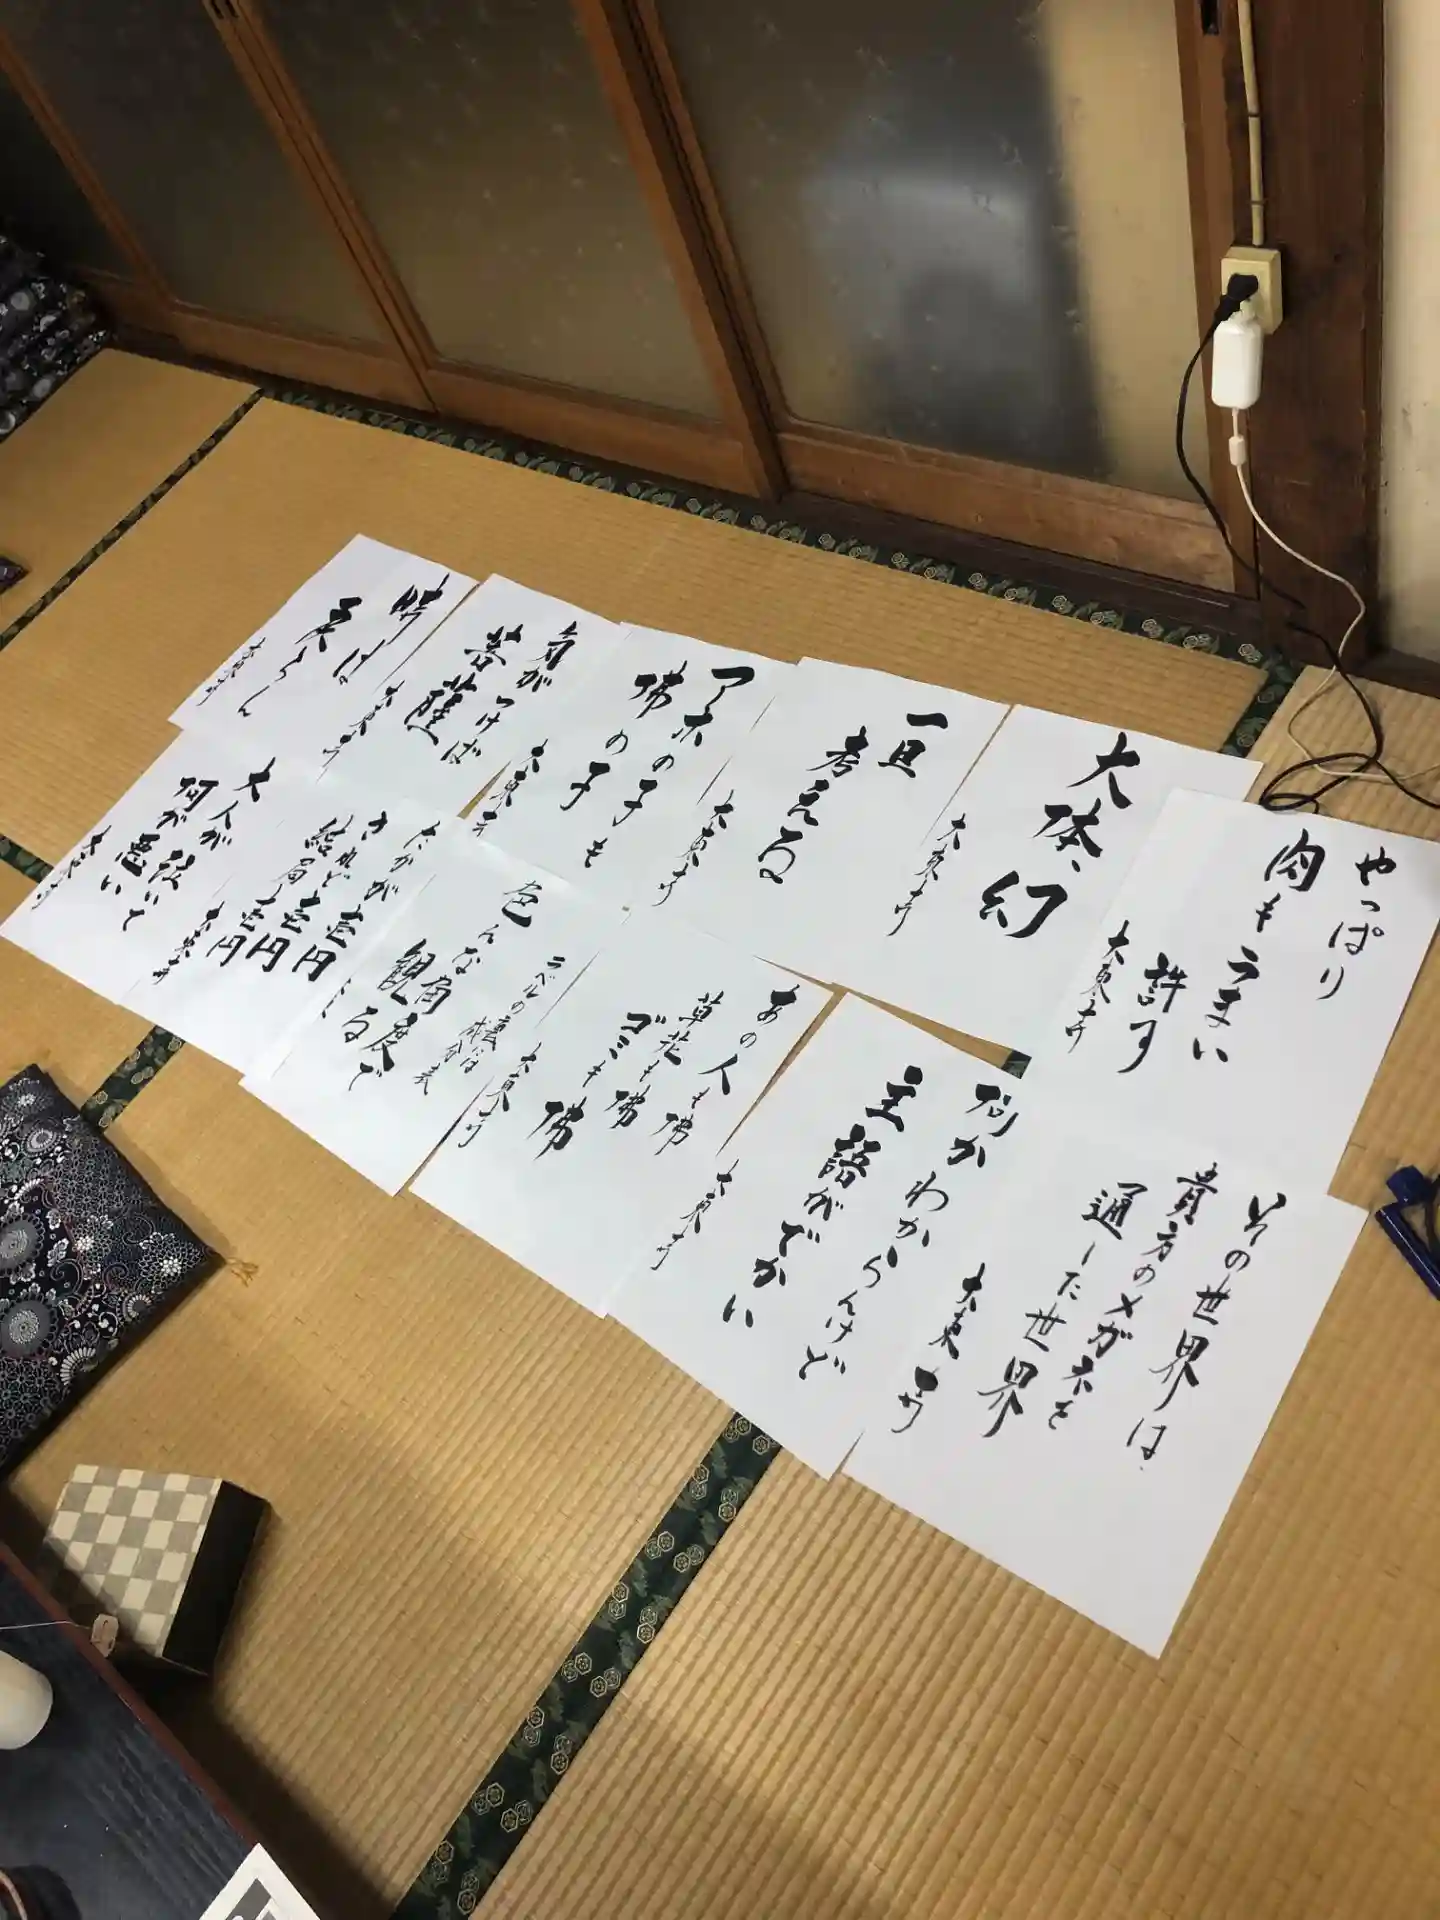 やっぱり
肉もうまい
許す
大東寺
大体、幻
大東寺
一旦
考える
大東寺
アホの子も
佛の子
大東寺
気がつけば
菩薩
大東寺
時は
大東寺
その世界は
貴方のメガネを
通した世界
大東寺
何かわからんけど
主語がでかい
大東寺
あの人も佛
草花も佛
ゴミも佛
大東寺
ラベルの裏には
成分表
色んな角度で
観る
たかが壱円
されど壱円
結局壱円
大東寺
大人が泣いて
何が悪い
大東寺